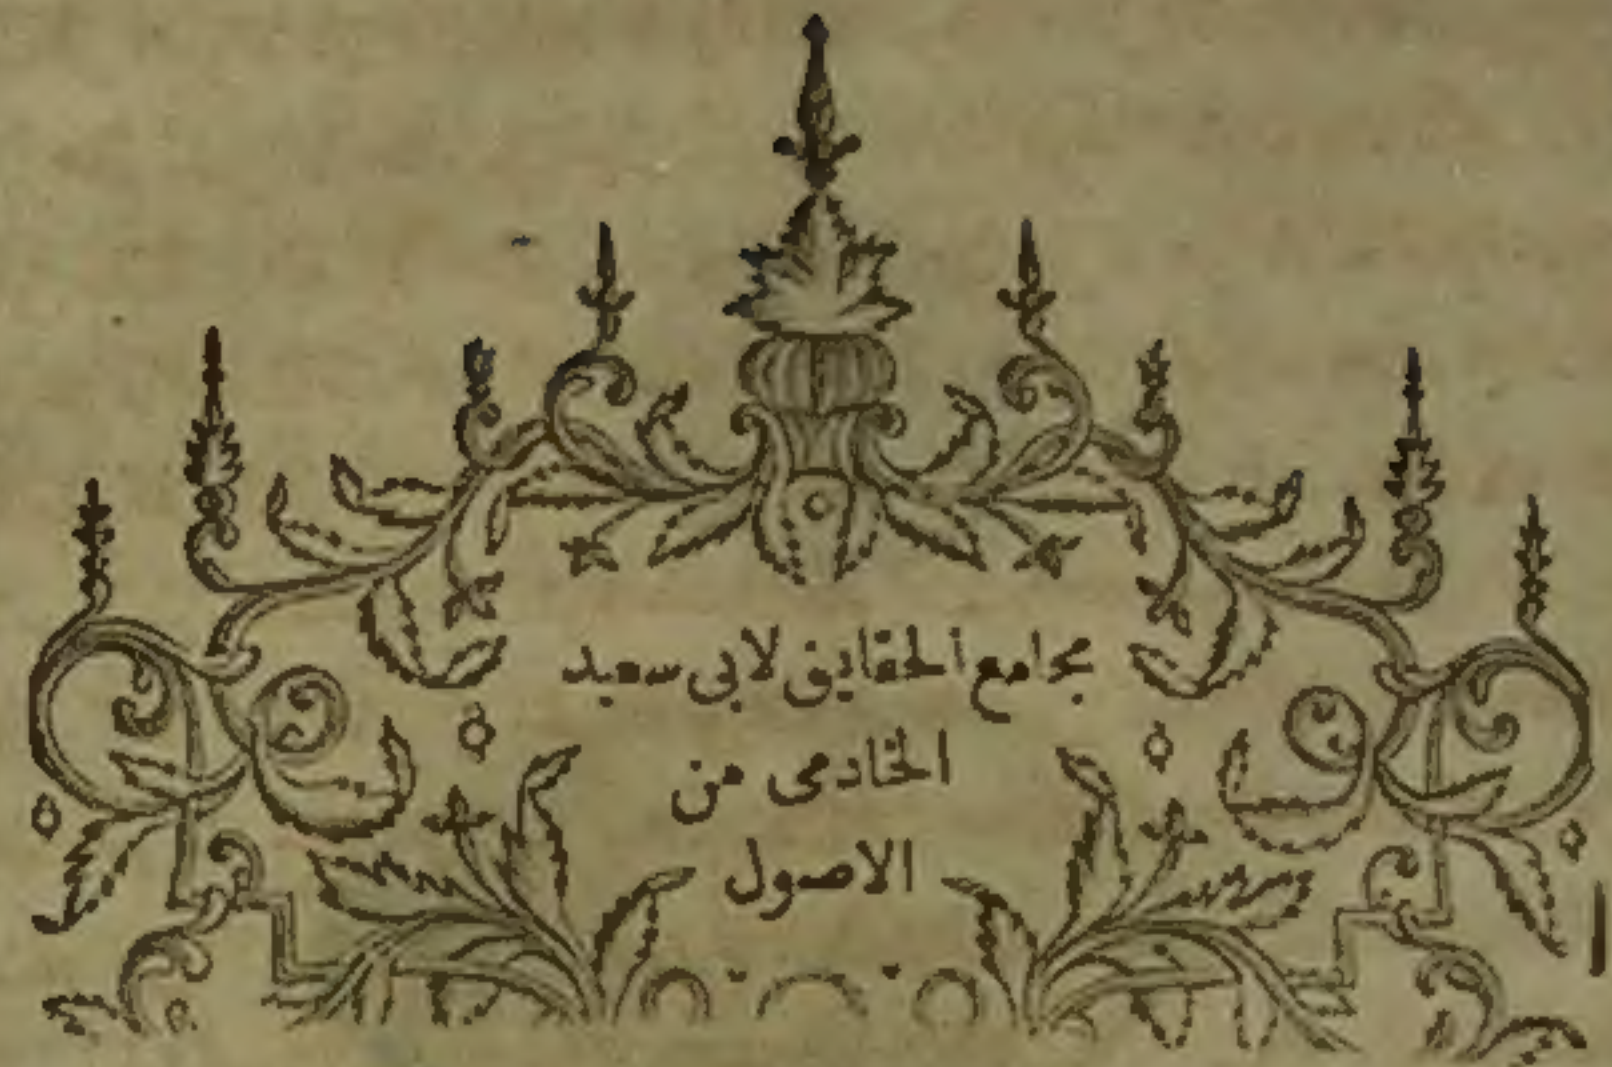 مجامع الحقايق لابى سعيد
الخادمى من
الاصول